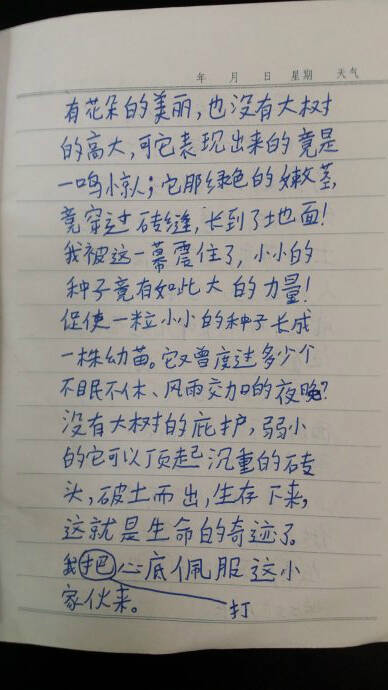 年 月 日 星期 天气
有花朵的美丽,也没有大树
的高大,可它表现出来的竟是
一鸣小惊人;它那绿色的嫩茎,
竟穿过砖缝,长到了地面!
我被这一幕震住了,小小的
种子竟有如此大的力量!
促使一粒小小的种子长成
一株幼苗。它又曾度过多少个
不眠不休、风雨交加的夜晚?
没有大树的庇护,弱小
的它可以顶起沉重的砖
头,破土而出,生存下来,
这就是生命的奇迹了。
我把心底佩服这小
家伙来。
打